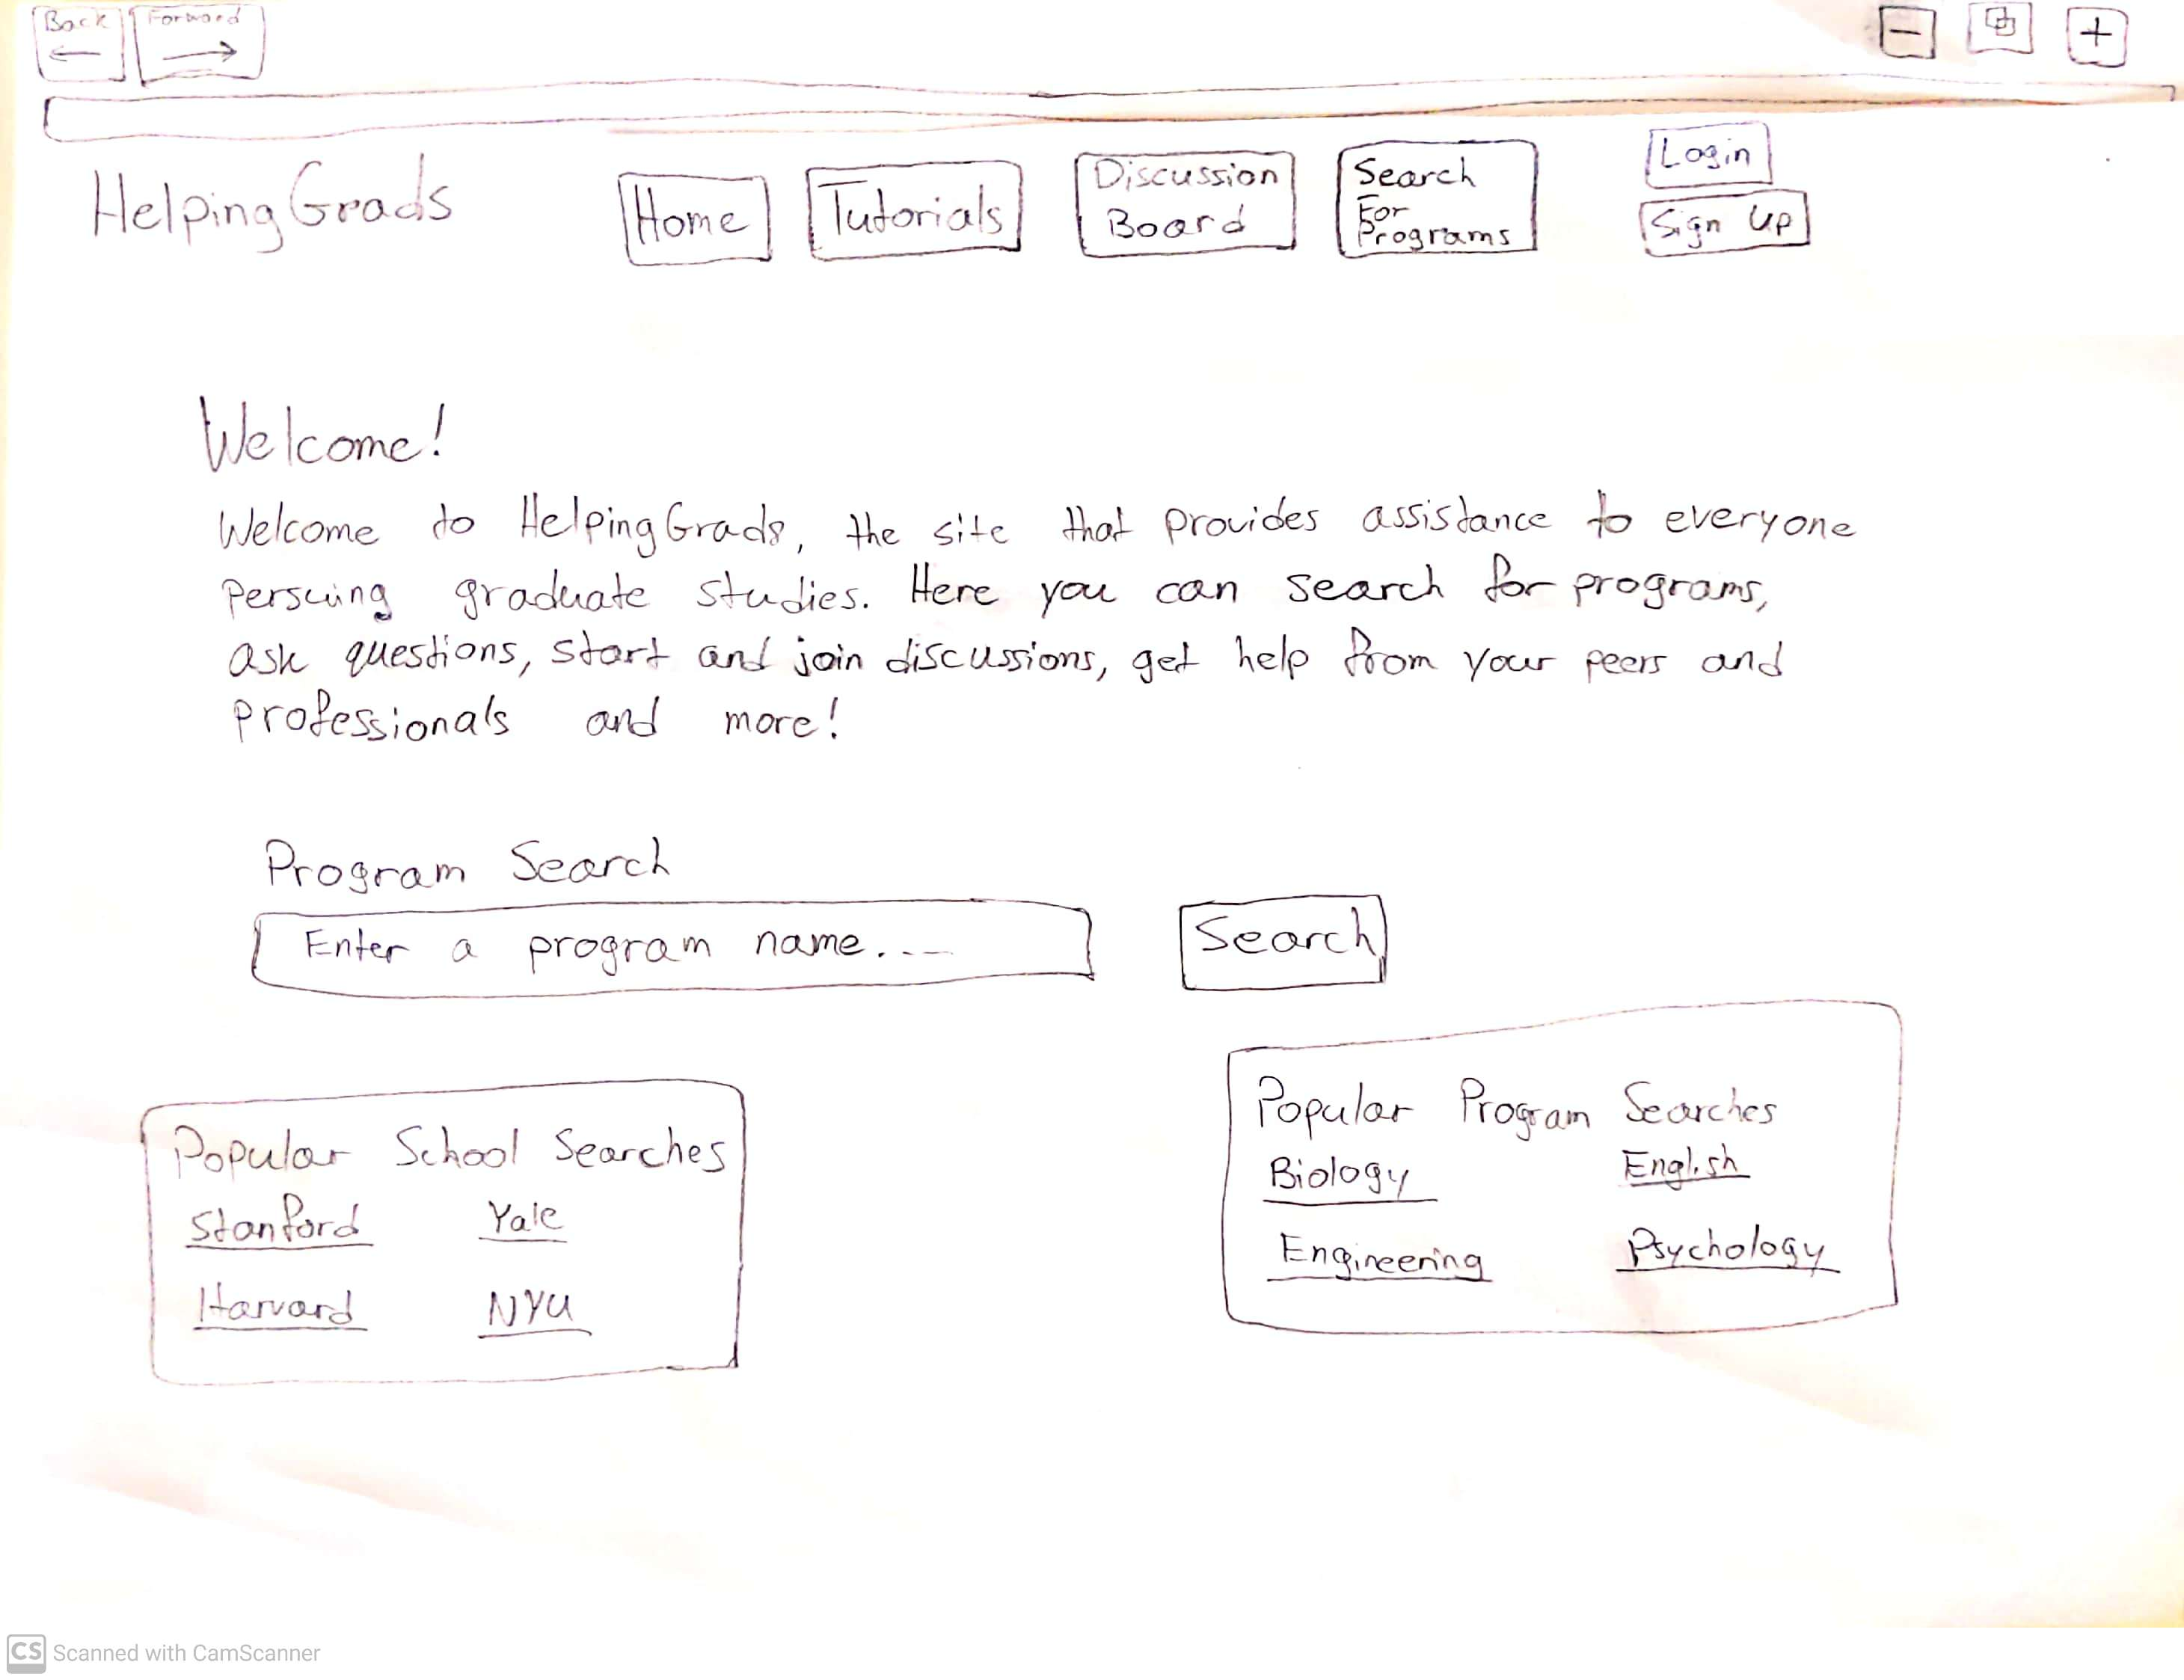 Back Forward
HelpingGrads
Home
Tutorials
Discussion
Board
Search
For
Programs
Login
Sign Up
Welcome!
Welcome to HelpingGrads, the site that provides assistance to everyone
persuing graduate studies. Here you can search for programs,
ask questions, start and join discussions, get help from your peers and
professionals and more!
Program Search
Enter a program name....
Search
Popular School Searches
Stanford Yale
Harvard NYU
Popular Program Searches
Biology English
Engineering Psychology
CS Scanned with CamScanner